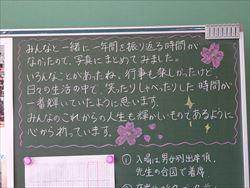 みんなと一緒に一年間を振り返る時間が
なかったので、写真にまとめてみました。
いろんなことがあったね。行事も楽しかったけど、
日々の生活の中で、笑ったりしゃべったりした時間が
一番輝いていたように思います。
みんなのこれからの人生も輝かしいものであるように
心から祈っています。
① 入場は男女別出席順、
先生の合図で着席